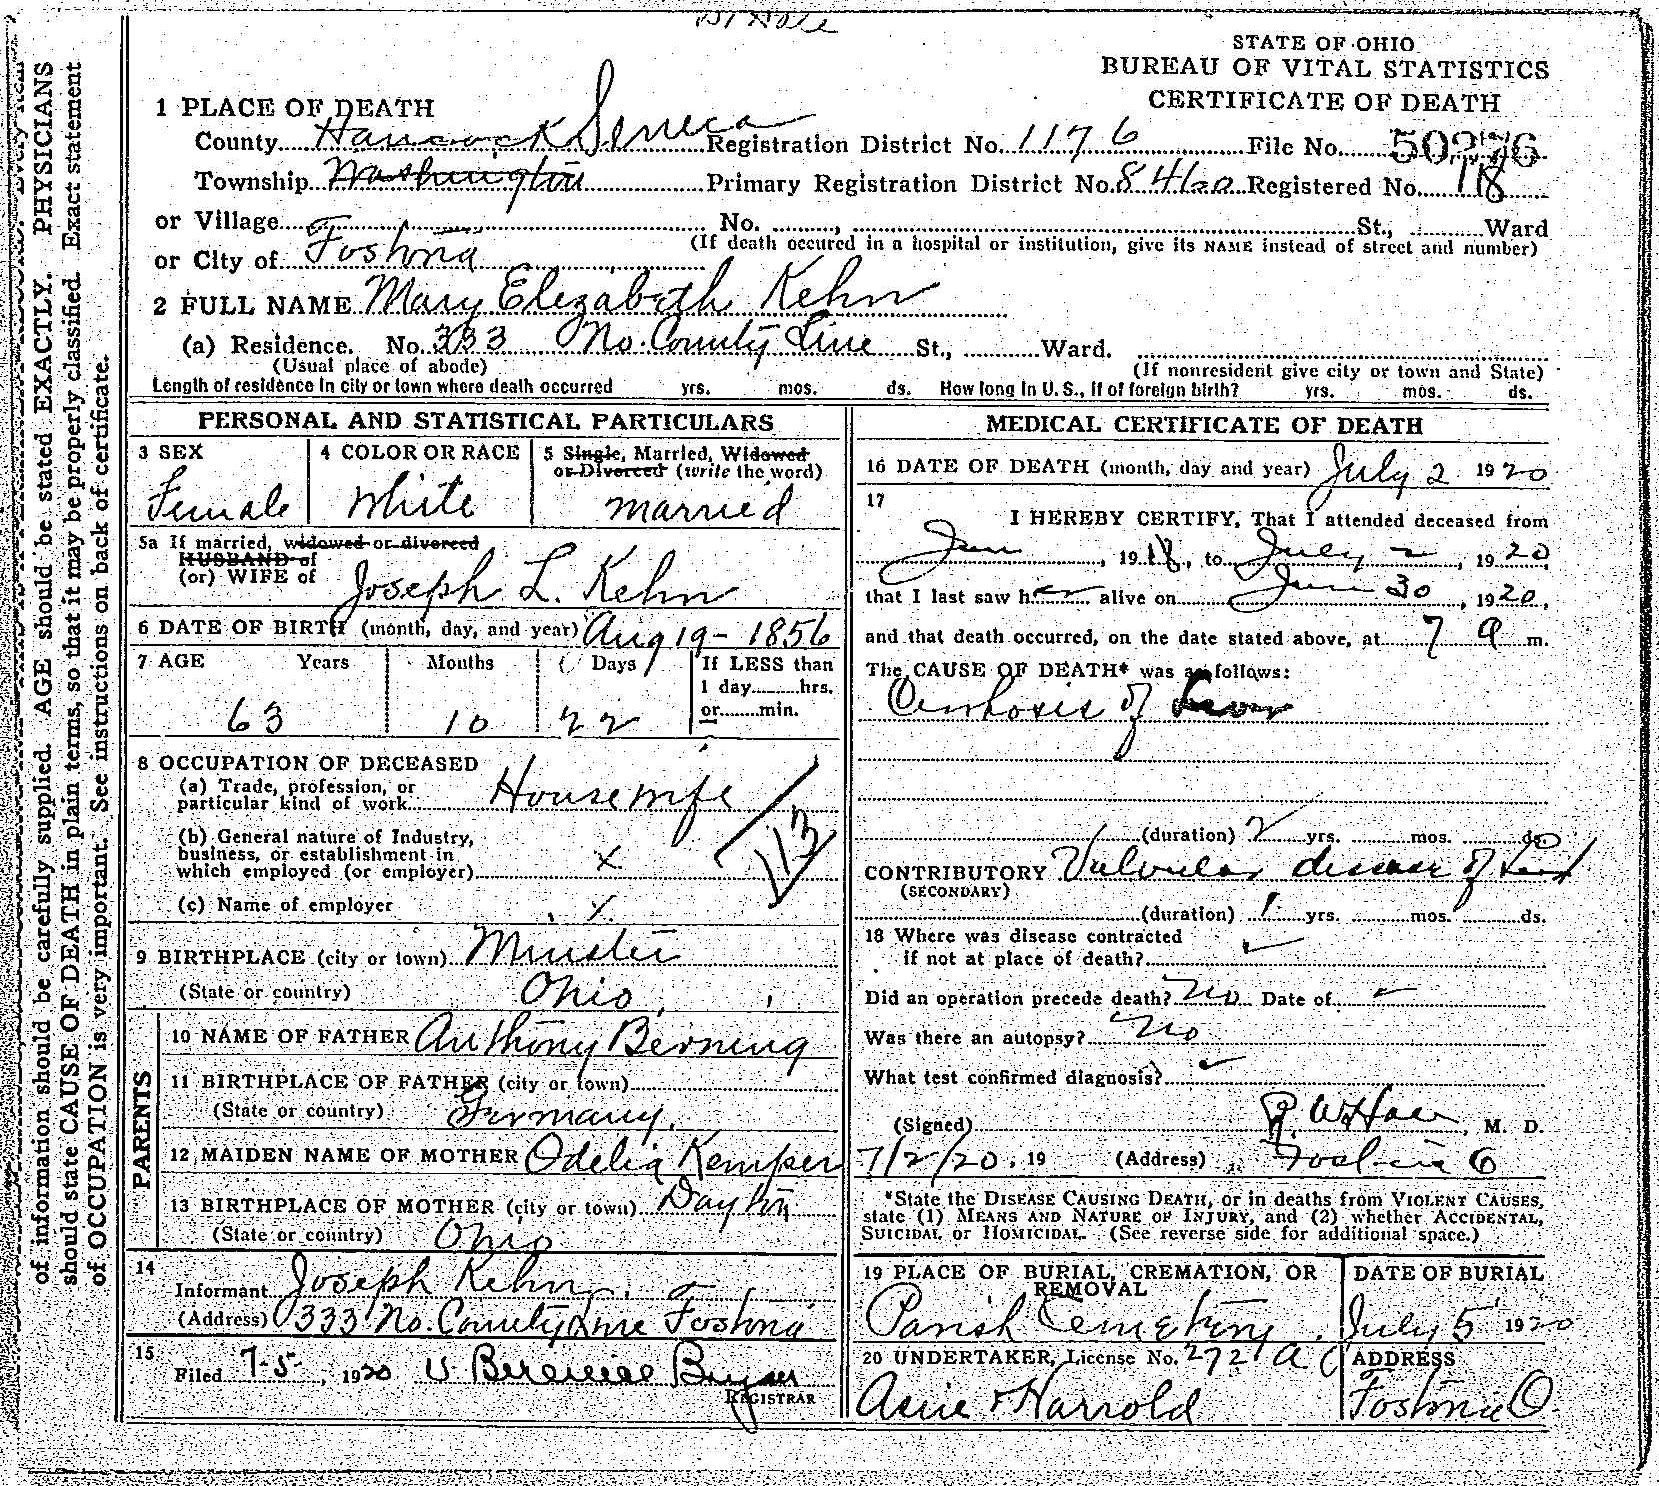 STATE OF OHIO
BUREAU OF VITAL STATISTICS
CERTIFICATE OF DEATH
1 PLACE OF DEATH
County Hancock Seneca Registration District No. 1176 File No.
Township Washington Primary Registration District No. 8420 Registered No. 118
or Village No. , St., Ward
(If death occured in a hospital or institution, give its NAME instead of street and number)
or City of Fostoria
2 FULL NAME Mary Elizabeth Kehn
(a) Residence. No. 333 No. County Line St., Ward.
(Usual place of abode) (If nonresident give city or town and State)
Length of residence in city or town where death occurred yrs. mos. ds. How long in U. S., if of foreign birth? yrs. mos. ds.
PERSONAL AND STATISTICAL PARTICULARS
3 SEX
Female
4 COLOR OR RACE
White
5 Single, Married, Widowed
or Divorced (write the word)
married
5a If married, widowed or divorced
HUSBAND of
(or) WIFE of Joseph L. Kehn
6 DATE OF BIRTH (month, day, and year) Aug 19 - 1856
7 AGE Years Months Days If LESS than
1 day hrs.
or min.
63 10 22
8 OCCUPATION OF DECEASED
(a) Trade, profession, or
particular kind of work Housewife
(b) General nature of Industry,
business, or establishment in
which employed (or employer) x
(c) Name of employer x
113
9 BIRTHPLACE (city or town) Minster
(State or country) Ohio
PARENTS
10 NAME OF FATHER Anthony Berning
11 BIRTHPLACE OF FATHER (city or town)
(State or country) Germany.
12 MAIDEN NAME OF MOTHER Odelia Kemper
13 BIRTHPLACE OF MOTHER (city or town) Dayton
(State or country) Ohio
14
Informant Joseph Kehn
(Address) 333 No. County Line Fostoria
15
Filed 7-5-, 1920
REGISTRAR
MEDICAL CERTIFICATE OF DEATH
16 DATE OF DEATH (month, day and year) July 2 1920
17
I HEREBY CERTIFY, That I attended deceased from
Jan , 1918, to July 2 , 1920,
that I last saw her alive on June 30 , 1920,
and that death occurred, on the date stated above, at 7 a m.
The CAUSE OF DEATH* was as follows:
Cirrhosis of Liver
(duration) 2 yrs. mos. ds.
CONTRIBUTORY Valvular disease of heart
(SECONDARY)
(duration) 1 yrs. mos. ds.
18 Where was disease contracted
if not at place of death?
Did an operation precede death? No Date of
Was there an autopsy? No
What test confirmed diagnosis?
(Signed) , M. D.
7/2/20, 19 (Address) Fostoria O
*State the DISEASE CAUSING DEATH, or in deaths from VIOLENT CAUSES,
state (1) MEANS AND NATURE OF INJURY, and (2) whether ACCIDENTAL,
SUICIDAL or HOMICIDAL. (See reverse side for additional space.)
19 PLACE OF BURIAL, CREMATION, OR
REMOVAL
Parish Cemetery.
DATE OF BURIAL
July 5 1920
20 UNDERTAKER, License No. 272 A
& Harrold
ADDRESS
Fostoria O.
of information should be carefully supplied. AGE should be stated EXACTLY. PHYSICIANS
should state CAUSE OF DEATH in plain terms, so that it may be properly classified. Exact statement
of OCCUPATION is very important. See instructions on back of certificate.